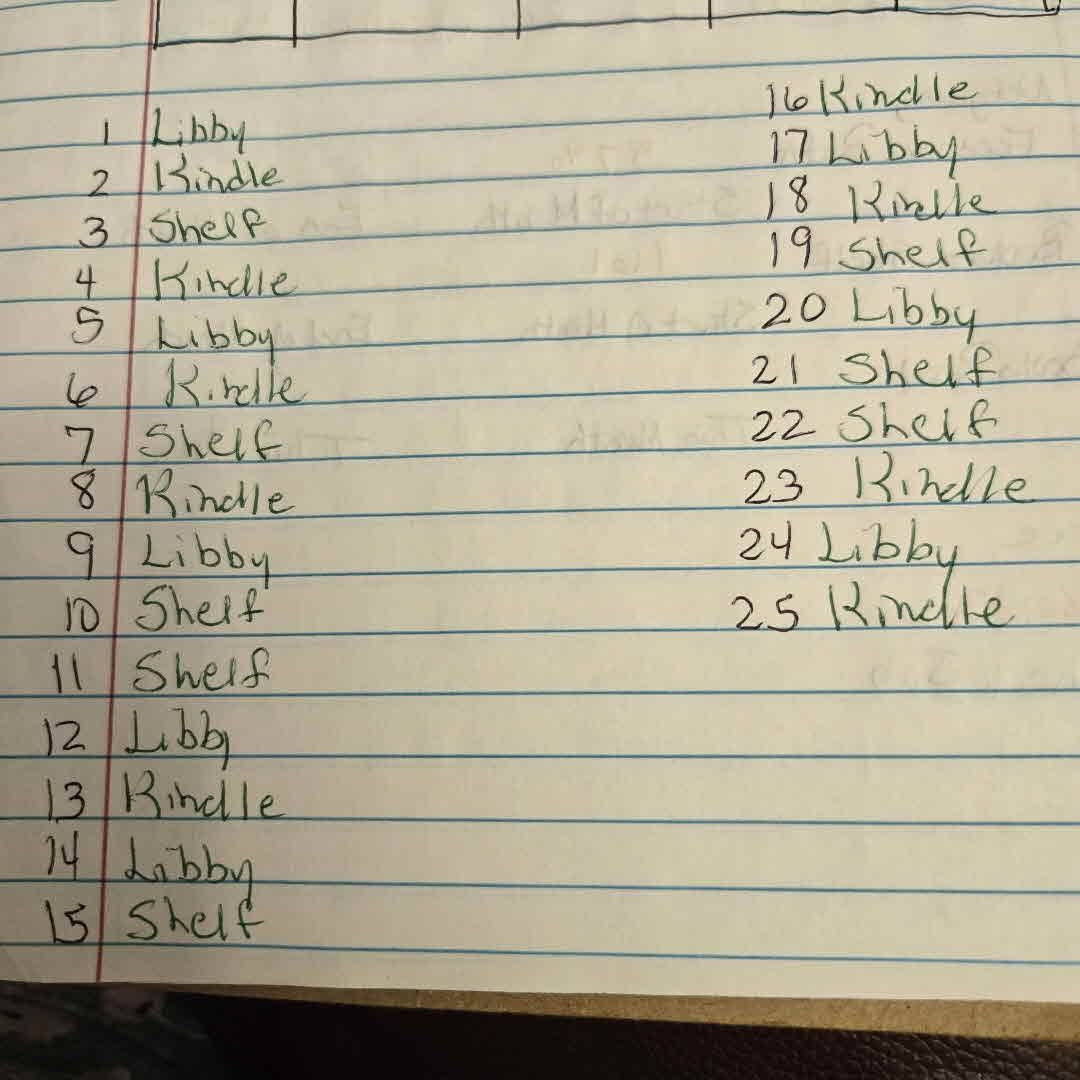 1 Libby
2 Kindle
3 Shelf
4 Kindle
5 Libby
6 Kindle
7 Shelf
8 Kindle
9 Libby
10 Shelf
11 Shelf
12 Libby
13 Kindle
14 Libby
15 Shelf
16 Kindle
17 Libby
18 Kindle
19 Shelf
20 Libby
21 Shelf
22 Shelf
23 Kindle
24 Libby
25 Kindle